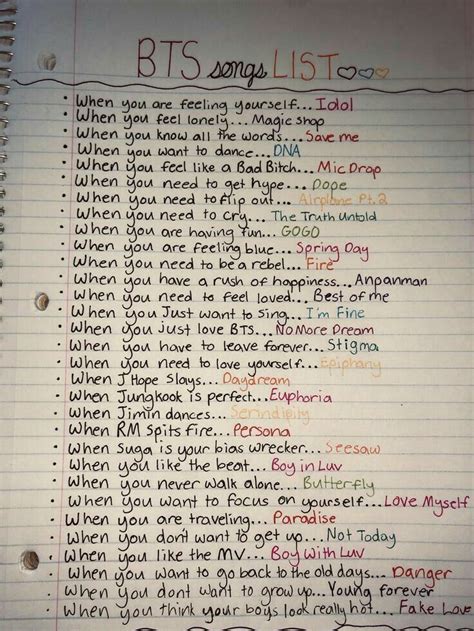 BTS songs LIST
· When you are feeling yourself... Idol
· When you feel lonely... Magic shop
· When you know all the words... Save me
· When you want to dance... DNA
· When you feel like a Bad Bitch... Mic Drop
· When you need to get hype... Dope
· When you need to flip out... Airplane Pt.2
· When you need to cry... The Truth Untold
· When you are having fun... GOGO
· When you are feeling blue... Spring Day
· When you need to be a rebel... Fire
· When you have a rush of happiness... Anpanman
· When you need to feel loved... Best of me
· When you Just want to sing... I'm Fine
· When you just love BTS... No More Dream
· When you have to leave forever... Stigma
· When you need to love yourself... Epiphany
· When J Hope Slays... Daydream
· When Jungkook is perfect... Euphoria
· When Jimin dances... Serindipity
· When RM Spits Fire... Persona
· When Suga is your bias wrecker... Seesaw
· When you like the beat... Boy in Luv
· When you never walk alone... Butterfly
· When you want to focus on yourself... Love Myself
· When you are traveling... Paradise
· When you don't want to get up... Not Today
· When you like the MV... Boy With Luv
· When you want to go back to the old days... Danger
· When you dont want to grow up... Young forever
· When you think your boys look really hot... Fake Love